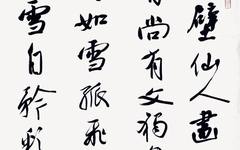 壁仙人畫
尚有文獨
如雪孤飛
雪自幹